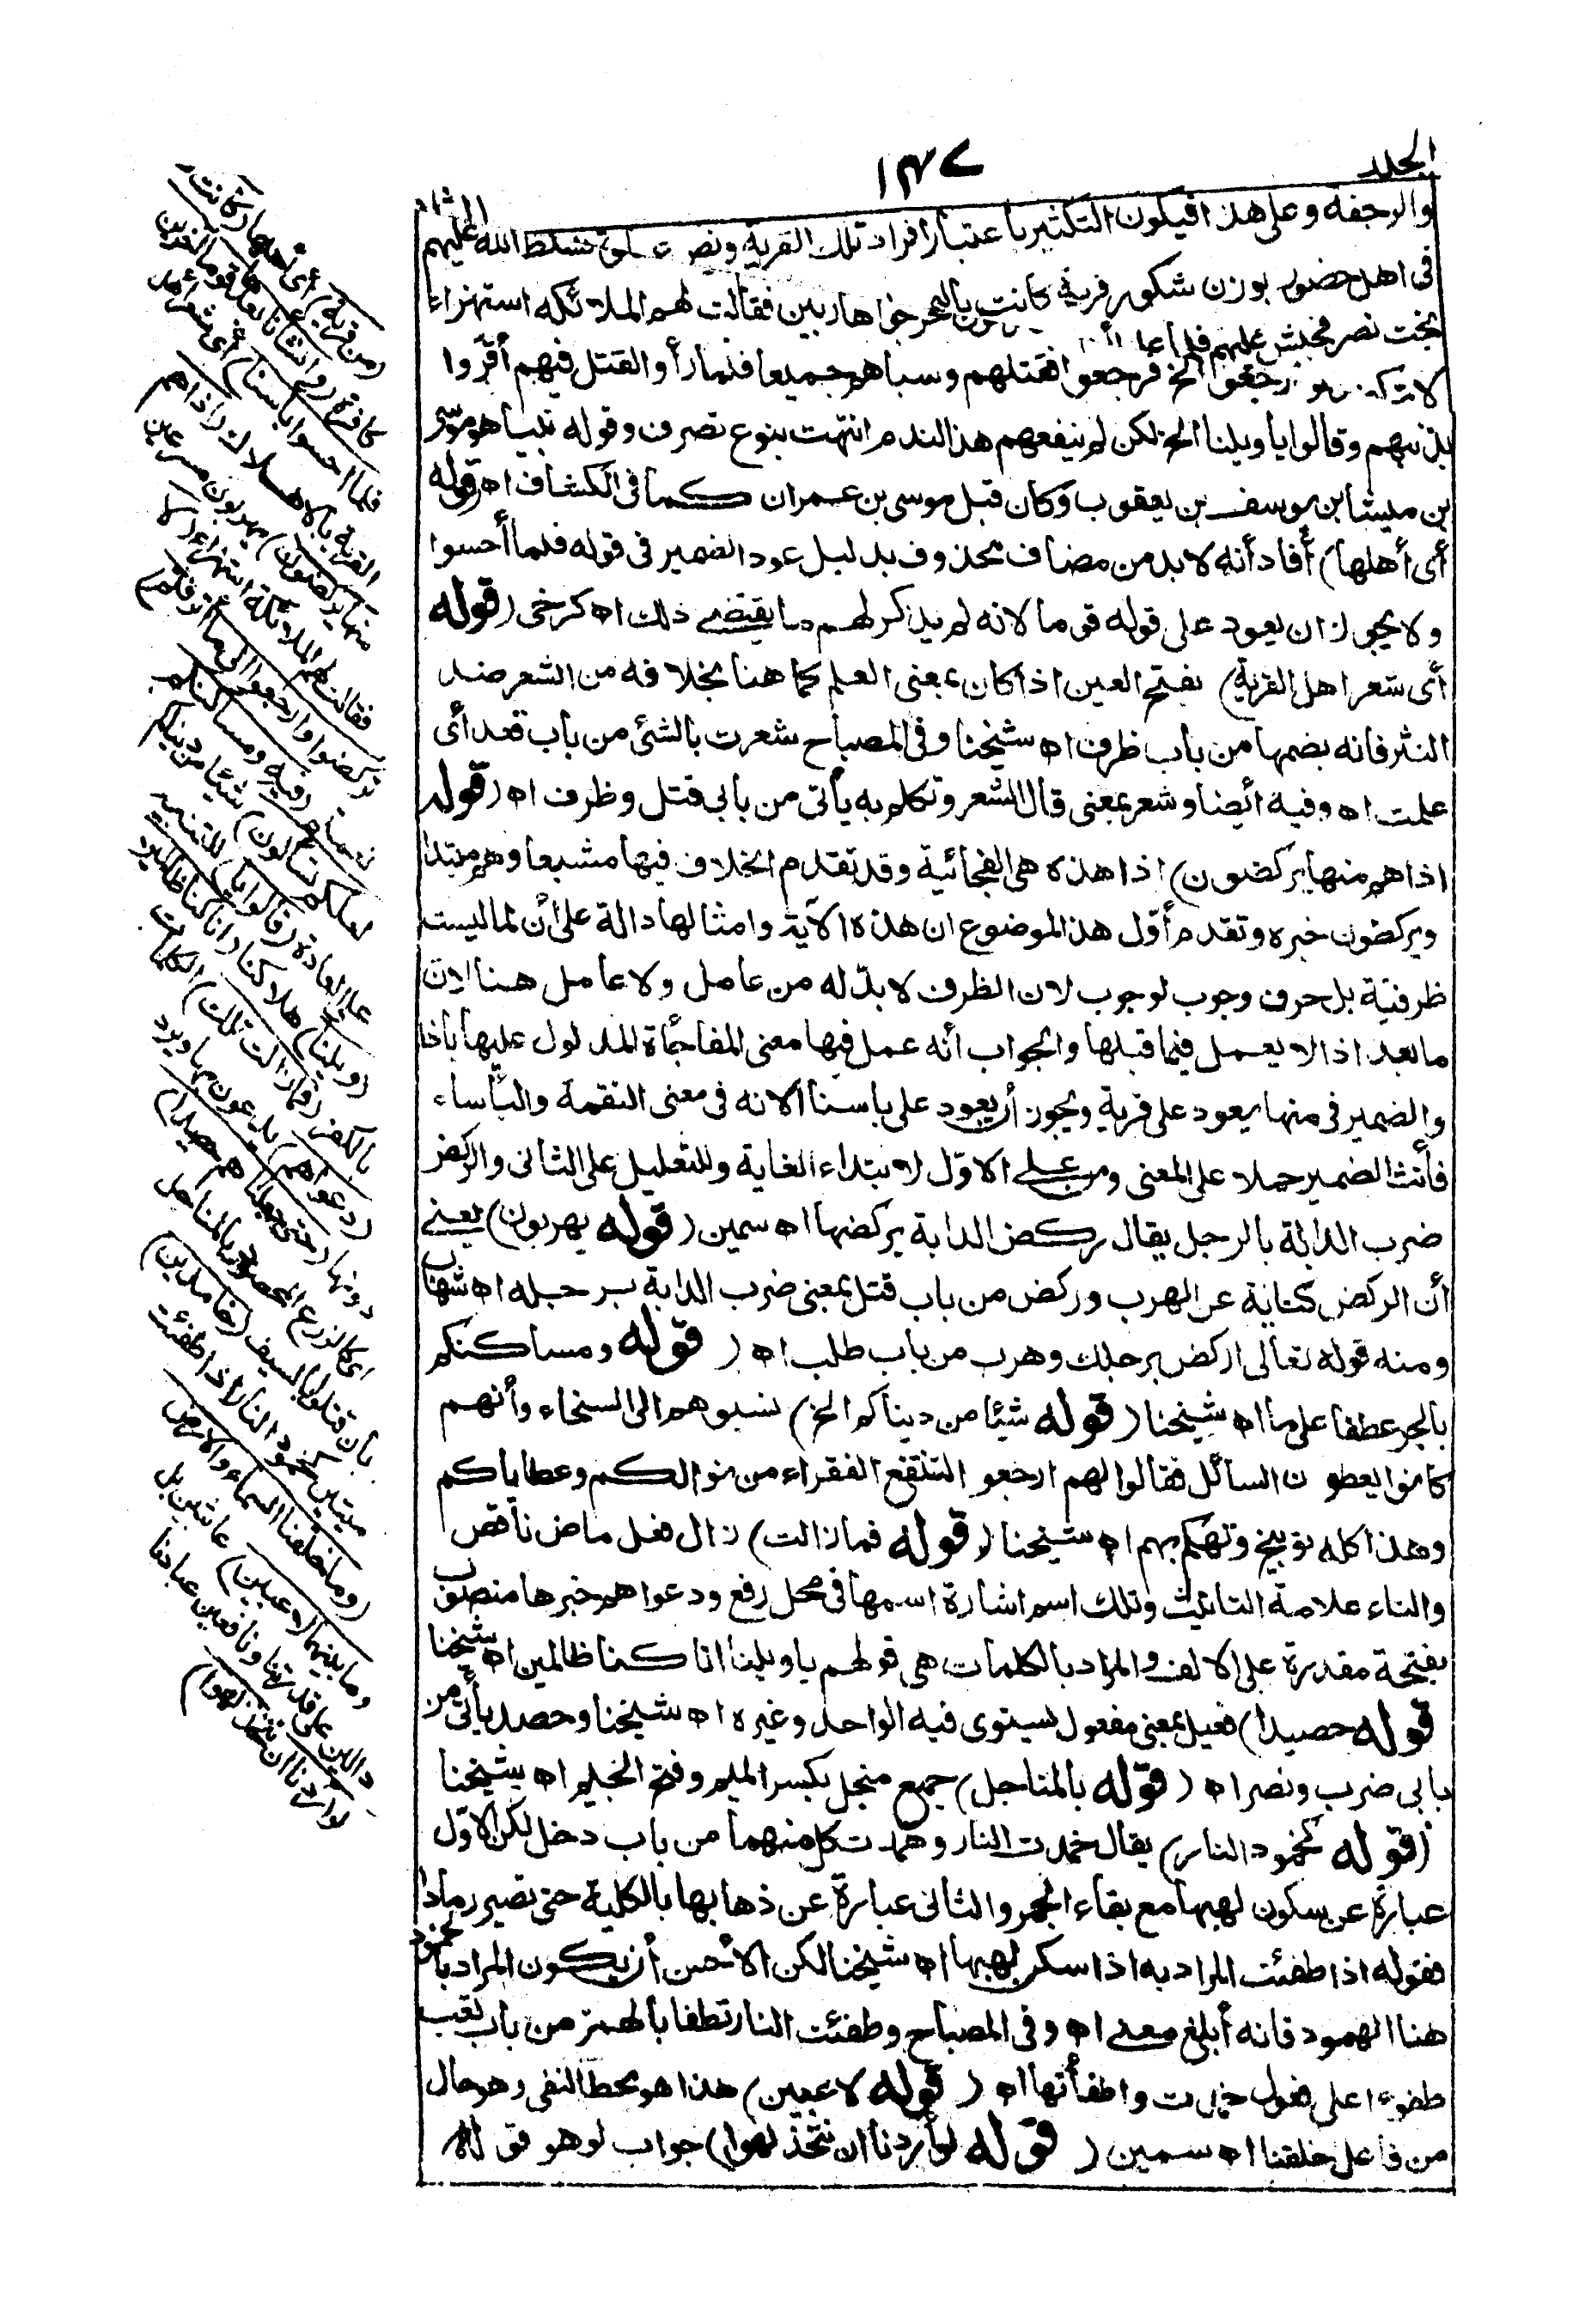 الجلد
١٣٧
الثالث
والرجفة وعلى هذا فيكون التكثير باعتبار افراد تلك القرية ونص
فى اهل حضور بوزن شكور قرية كانت باليمن فسلط الله عليهم
بخت نصر فجيش عليهم فلما خرجوا هاربين فقالت لهم الملائكة استهزاء
لا تركضوا وارجعوا الخ فرجعوا فقتلهم وسباهم جميعا فلما رأوا القتل فيهم أقروا
بذنبهم وقالوا يا ويلنا الخ لكن لم ينفعهم هذا الندم انتهت بنوع تصرف وقوله نبيا هو موسى
بن ميشا بن يوسف بن يعقوب وكان قبل موسى بن عمران كما فى الكشاف اه (قوله
أى أهلها) أفاد أنه لا بد من مضاف محذوف بدليل عود الضمير فى قوله فلما أحسوا
ولا يجوز ان يعود على قوله قوما لانه لم يذكر لهم ما يقتضى ذلك اه كرخى (قوله
أى شعر اهل القرية) بفتح العين اذا كان بمعنى العلم كما هنا بخلافه من الشعر ضد
النثر فانه بضمها من باب ظرف اه شيخنا وفى المصباح شعرت بالشئ من باب قعد أى
علمت اه وفيه ائيضا وشعر بمعنى قال الشعر وتكلم به يأتى من بابى قتل وظرف اه (قوله
اذا هم منها يركضون) اذا هذه هى الفجائية وقد تقدم الخلاف فيها مشبعا وهم مبتدا
ويركضون خبره وتقدم أوّل هذا الموضوع ان هذه الآية وامثالها دالة على أن لما ليست
ظرفية بل حرف وجوب لوجوب لان الظرف لا بدّ له من عامل ولا عامل هنا لان
ما بعد اذا لا يعمل فيما قبلها والجواب أنه عمل فيها معنى المفاجأة المدلول عليها باذا
والضمير فى منها يعود على قرية ويجوز أن يعود على باسنا لانه فى معنى النقمة والبأساء
فأنث الضمير حملا على المعنى ومن على الاوّل لابتداء الغاية وللتعليل على الثانى والركض
ضرب الدابة بالرجل يقال ركض الدابة يركضها اه سمين (قوله يهربون) يعنى
أن الركض كناية عن الهرب وركض من باب قتل بمعنى ضرب الدابة برجله اه شهاب
ومنه قوله تعالى اركض برجلك وهرب من باب طلب اه (قوله ومساكنكم
بالجر عطفا على ما اه شيخنا (قوله شيئا من دنياكم الخ) نسبوهم الى السخاء وأنهم
كانوا يعطون السائل فقالوا لهم ارجعوا لتنتفع الفقراء من نوالكم وعطاياكم
وهذا كله توبيخ وتهكم بهم اه شيخنا (قوله فما زالت) زال فعل ماض ناقص
والتاء علامة التانيث وتلك اسم اشارة اسمها فى محل رفع ودعواهم خبرها منصوب
بفتحة مقدرة على الالف والمراد بالكلمات هى قولهم يا ويلنا انا كنا ظالمين اه شيخنا
قوله حصيدا) فعيل بمعنى مفعول يستوى فيه الواحد وغيره اه شيخنا وحصد يأتى من
بابى ضرب ونصر اه (قوله بالمناجل) جمع منجل بكسر الميم وفتح الجيم اه شيخنا
(قوله كخمود النار) يقال خمدت النار وهمدت كل منهما من باب دخل لكن الاوّل
عبارة عن سكون لهبها مع بقاء الجمر والثانى عبارة عن ذهابها بالكلية حتى تصير رمادا
فقوله اذا طفئت المراد به اذا سكن لهبها اه شيخنا لكن الأحسن أن يكون المراد بالخمود
هنا الهمود فانه أبلغ معنى اه وفى المصباح وطفئت النار تطفا بالهمز من باب تعب
طفوءا على فعول خمدت واطفأتها اه (قوله لاعبين) هذا هو محط النفى وهو حال
من فاعل خلقنا اه سمين (قوله لو أردنا ان نتخذ لهوا) جواب لو هو قوله
(من قرية) أى أهلها (كانت
كافرة (وانشأنا بعدها قوما آخرين
فلما احسوا باسنا) أى شعر أهل
القرية بالاهلاك (اذا هم
منها يركضون) يهربون مسرعين
فقالت لهم الملائكة استهزاء (لا
تركضوا وارجعوا الى ما أترفتم)
نعمتم (فيه ومساكنكم
لعلكم تسألون) شيئا من دنياكم
على العادة (قالوا يا) للتنبيه
(ويلنا) هلاكنا (انا كنا ظالمين)
بالكفر (فما زالت تلك) الكلمات
(دعواهم) يدعون بها ويرددونها
(حتى جعلناهم حصيدا)
أى كالزرع المحصود بالمناجل
بأن قتلوا بالسيف (خامدين)
ميتين كخمود النار اذا طفئت
(وما خلقنا السماء والارض
وما بينهما لاعبين) عابثين بل
دالين على قدرتنا ونافعين عبادنا
(لو أردنا ان نتخذ لهوا)